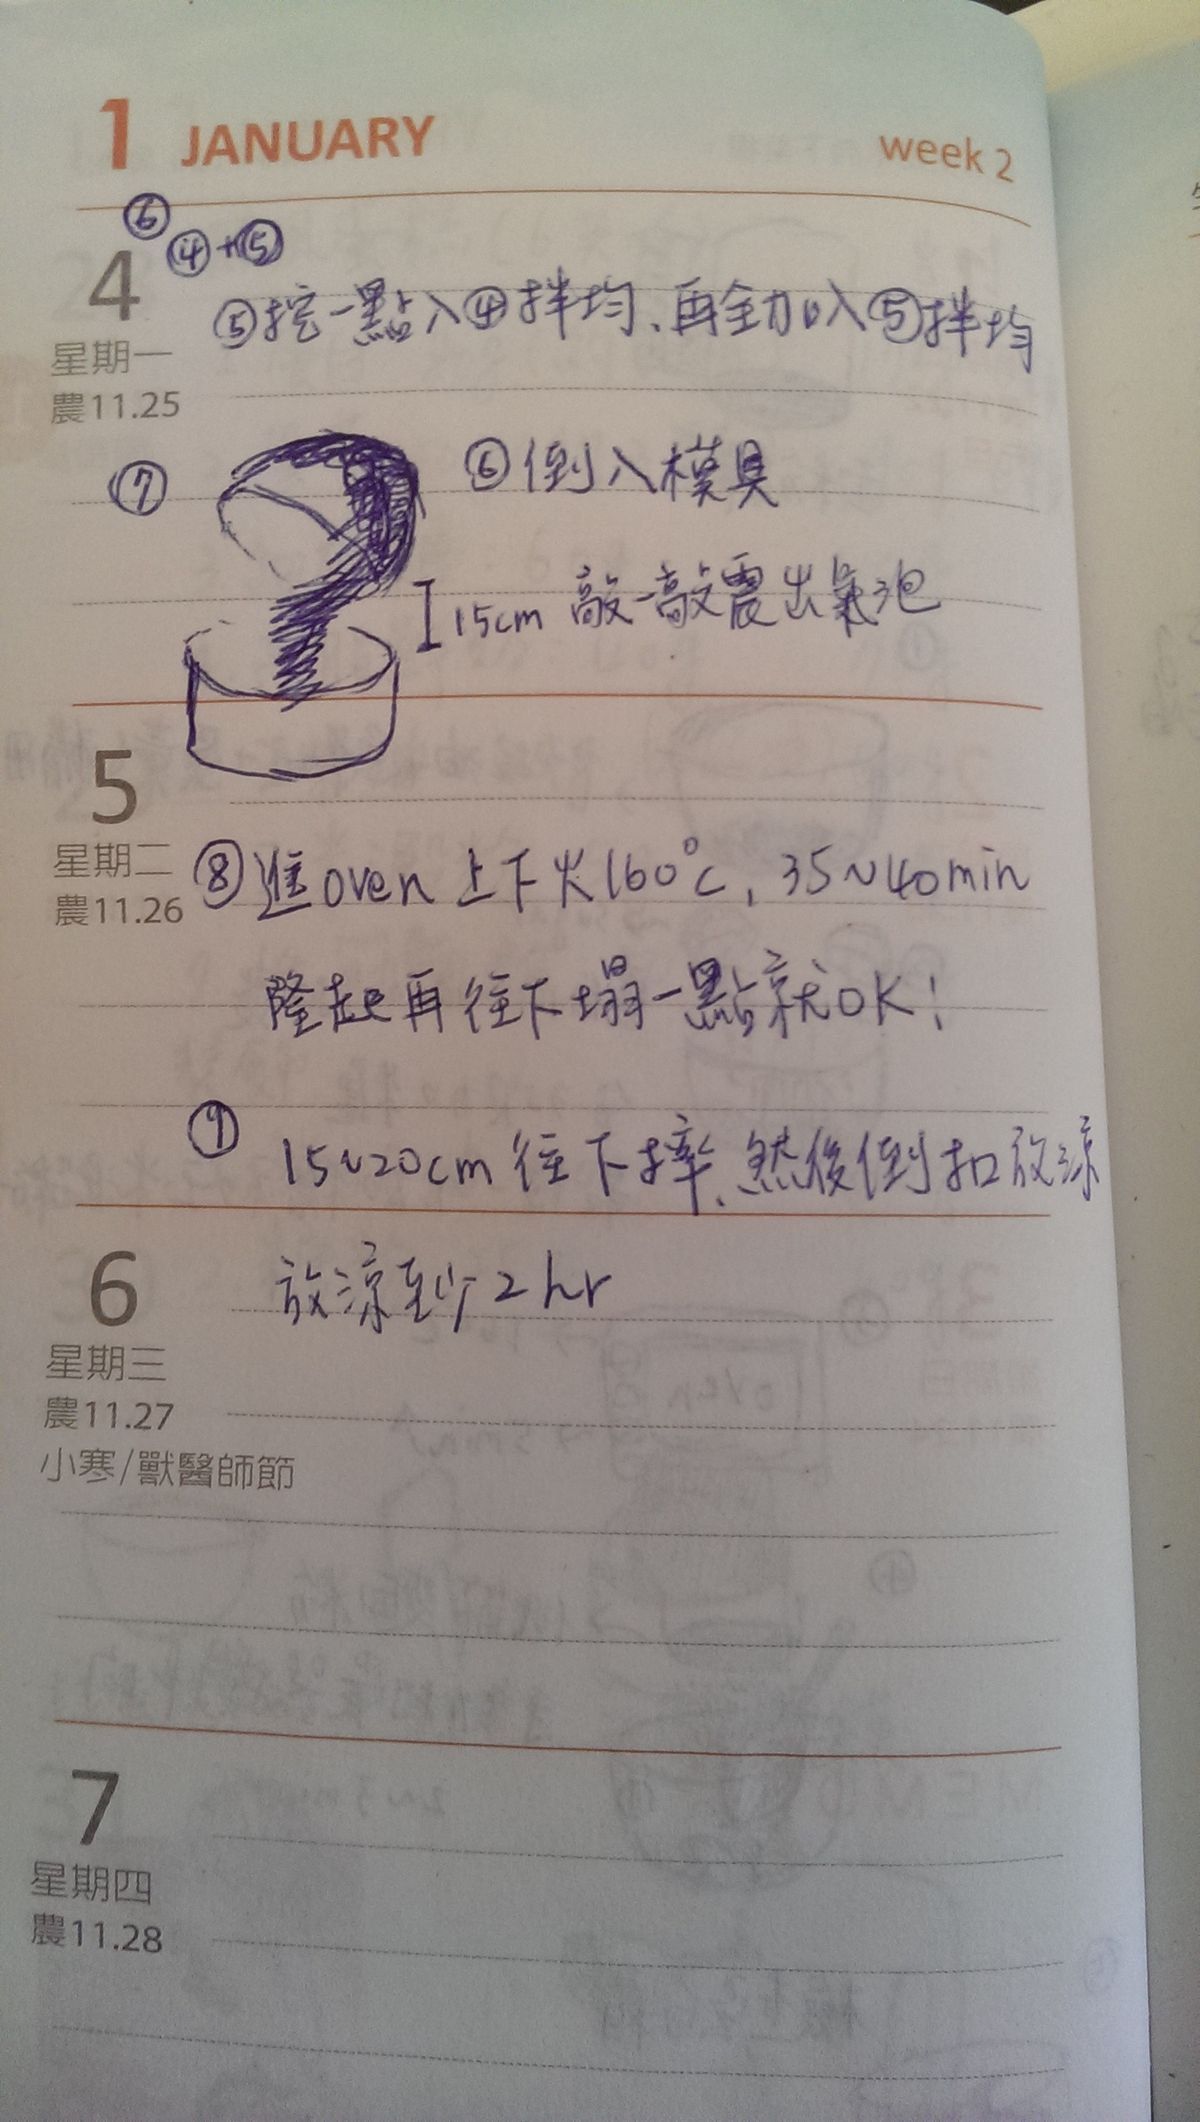 1 JANUARY week 2
⑥
④+⑤
4
⑤挖一點入④拌均、再全加入⑤拌均
星期一
農11.25
⑦ ⑥倒入模具
15cm 敲一敲震出氣泡
5
星期二
農11.26
⑧進oven 上下火160°C, 35~40min
隆起再往下塌一點就OK!
⑨
15~20cm 往下摔、然後倒扣放涼
6
放涼至少2hr
星期三
農11.27
小寒/獸醫師節
7
星期四
農11.28